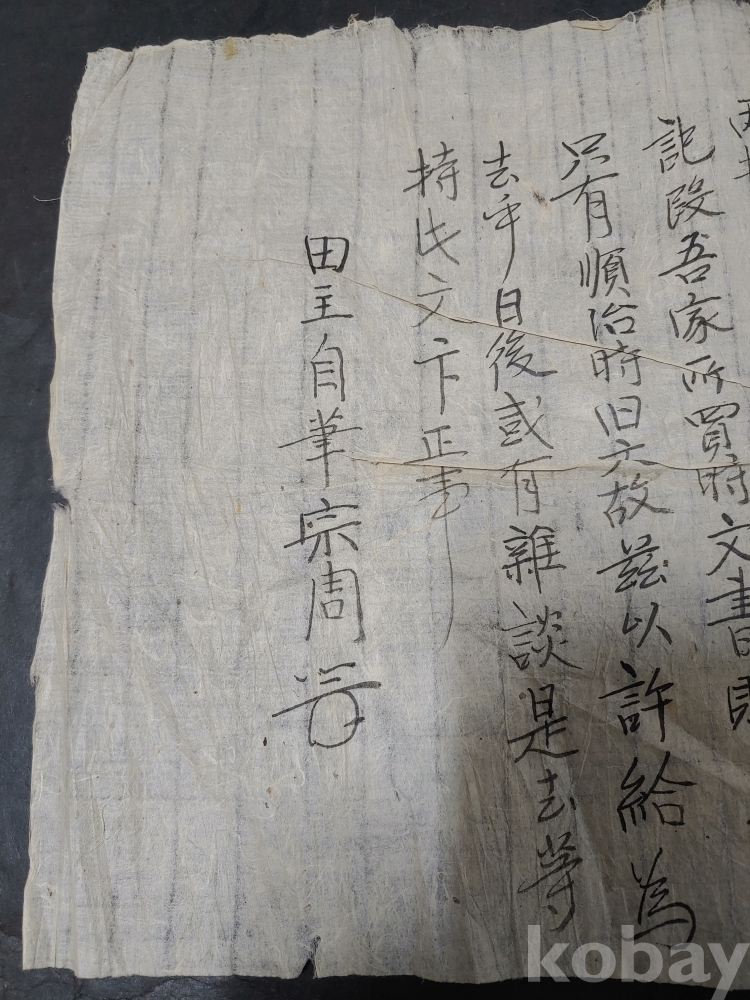 記段吾家所買時文書則
只有順治時旧文故茲以許給為
去乎日後或有雜談是去等
持此文卞正事
田主自筆宗周
kobay